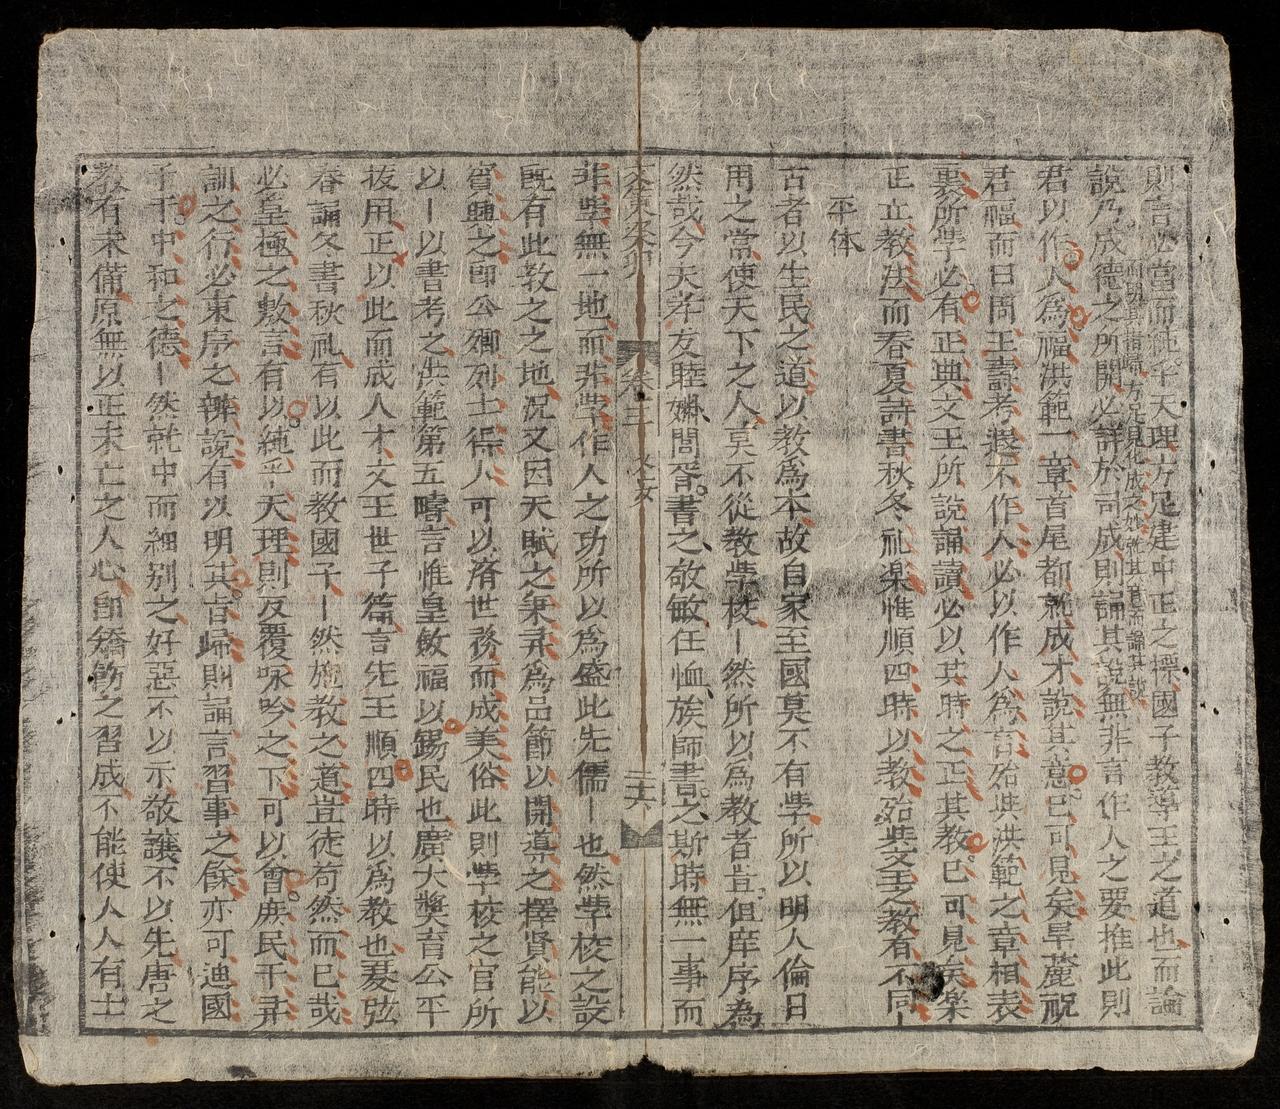 則言必當而純乎天理方足建中正之標國子教導王之道也而論
說乃成德之所關必詳於司成則論其說無非言作人之要推此則
君以作人為福洪範一章首尾都就成才說其意已可見矣旱麓祝
君福而曰周王壽考遐不作人必以作人為言殆與洪範之章相表
裏所學必有正典文王所說誦讀必以其時之正其教已可見矣楽
正立教法而春夏詩書秋冬礼楽惟順四時以教殆與文王之教有不同丨
平体
古者以生民之道以教為本故自家至國莫不有斈所以明人倫日
用之當使天下之人莫不從教斈校丨然所以為教者豈但庠序為
然哉今天孝友睦婣閭胥書之敬敏任恤族師書之斯時無一事而
卷三
二六
非斈無一地而非斈作人之功所以為盛此先儒丨也然斈校之設
既有此教之之地况又因天賦之秉彝為品節以開導之擇賢能以
賓興之即公卿列士得人可以済世務而成美俗此則斈校之官所
以丨以書考之洪範第五疇言惟皇斂福以錫民也廣大奬育公平
拔用正以此而成人才文王世子篇言先王順四時以為教也夏弦
春誦冬書秋礼有以此而教國子丨然施教之道豈徒苟然而已哉
必皇極之敷言有以純乎天理則反覆咏吟之下可以會庶民于彝
訓之行必東序之辨說有以明其旨歸則誦言習事之餘亦可迪國
子于中和之德丨然就中而細别之好惡不以示敬讓不以先唐之
教有未備原無以正未亡之人心即矯飭之習成不能使人人有士